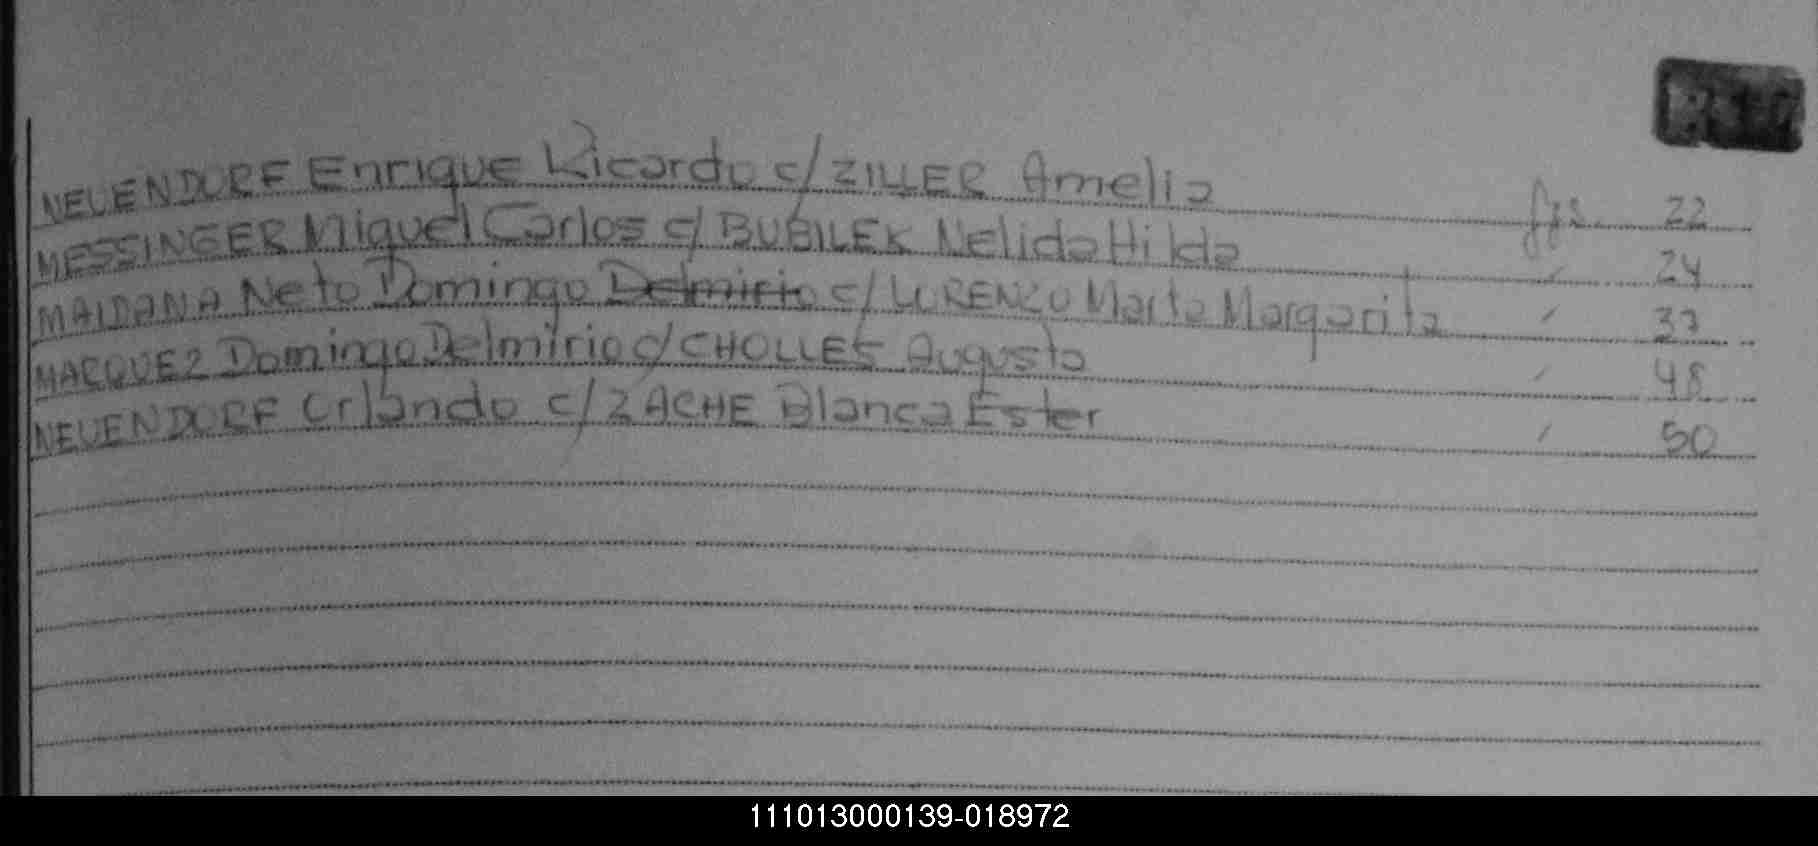 NEUENDORF Enrique Ricardo c/ ZILLER Amelia fjs. 22
MESSINGER Miguel Carlos c/ BUBILEK Nelida Hilda " 24
MAIDANA Neto Domingo Delmirio c/ LORENZO Marta Margarita "
MARQUEZ Domingo Delmirio c/ CHOLLES Augusta " 48
NEUENDORF Orlando c/ ZACHE Blanca Ester " 50
111013000139-018972